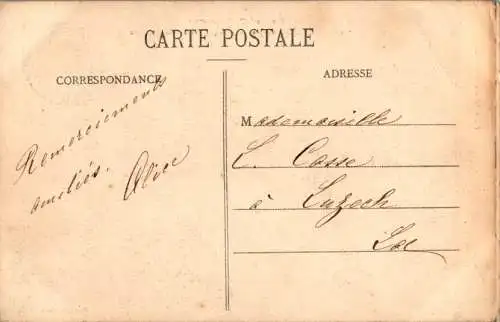 CARTE POSTALE
CORRESPONDANCE
ADRESSE
Remerciements
amitiés.
Alice
Mademoiselle
L. Casse
à Luzech
Lot